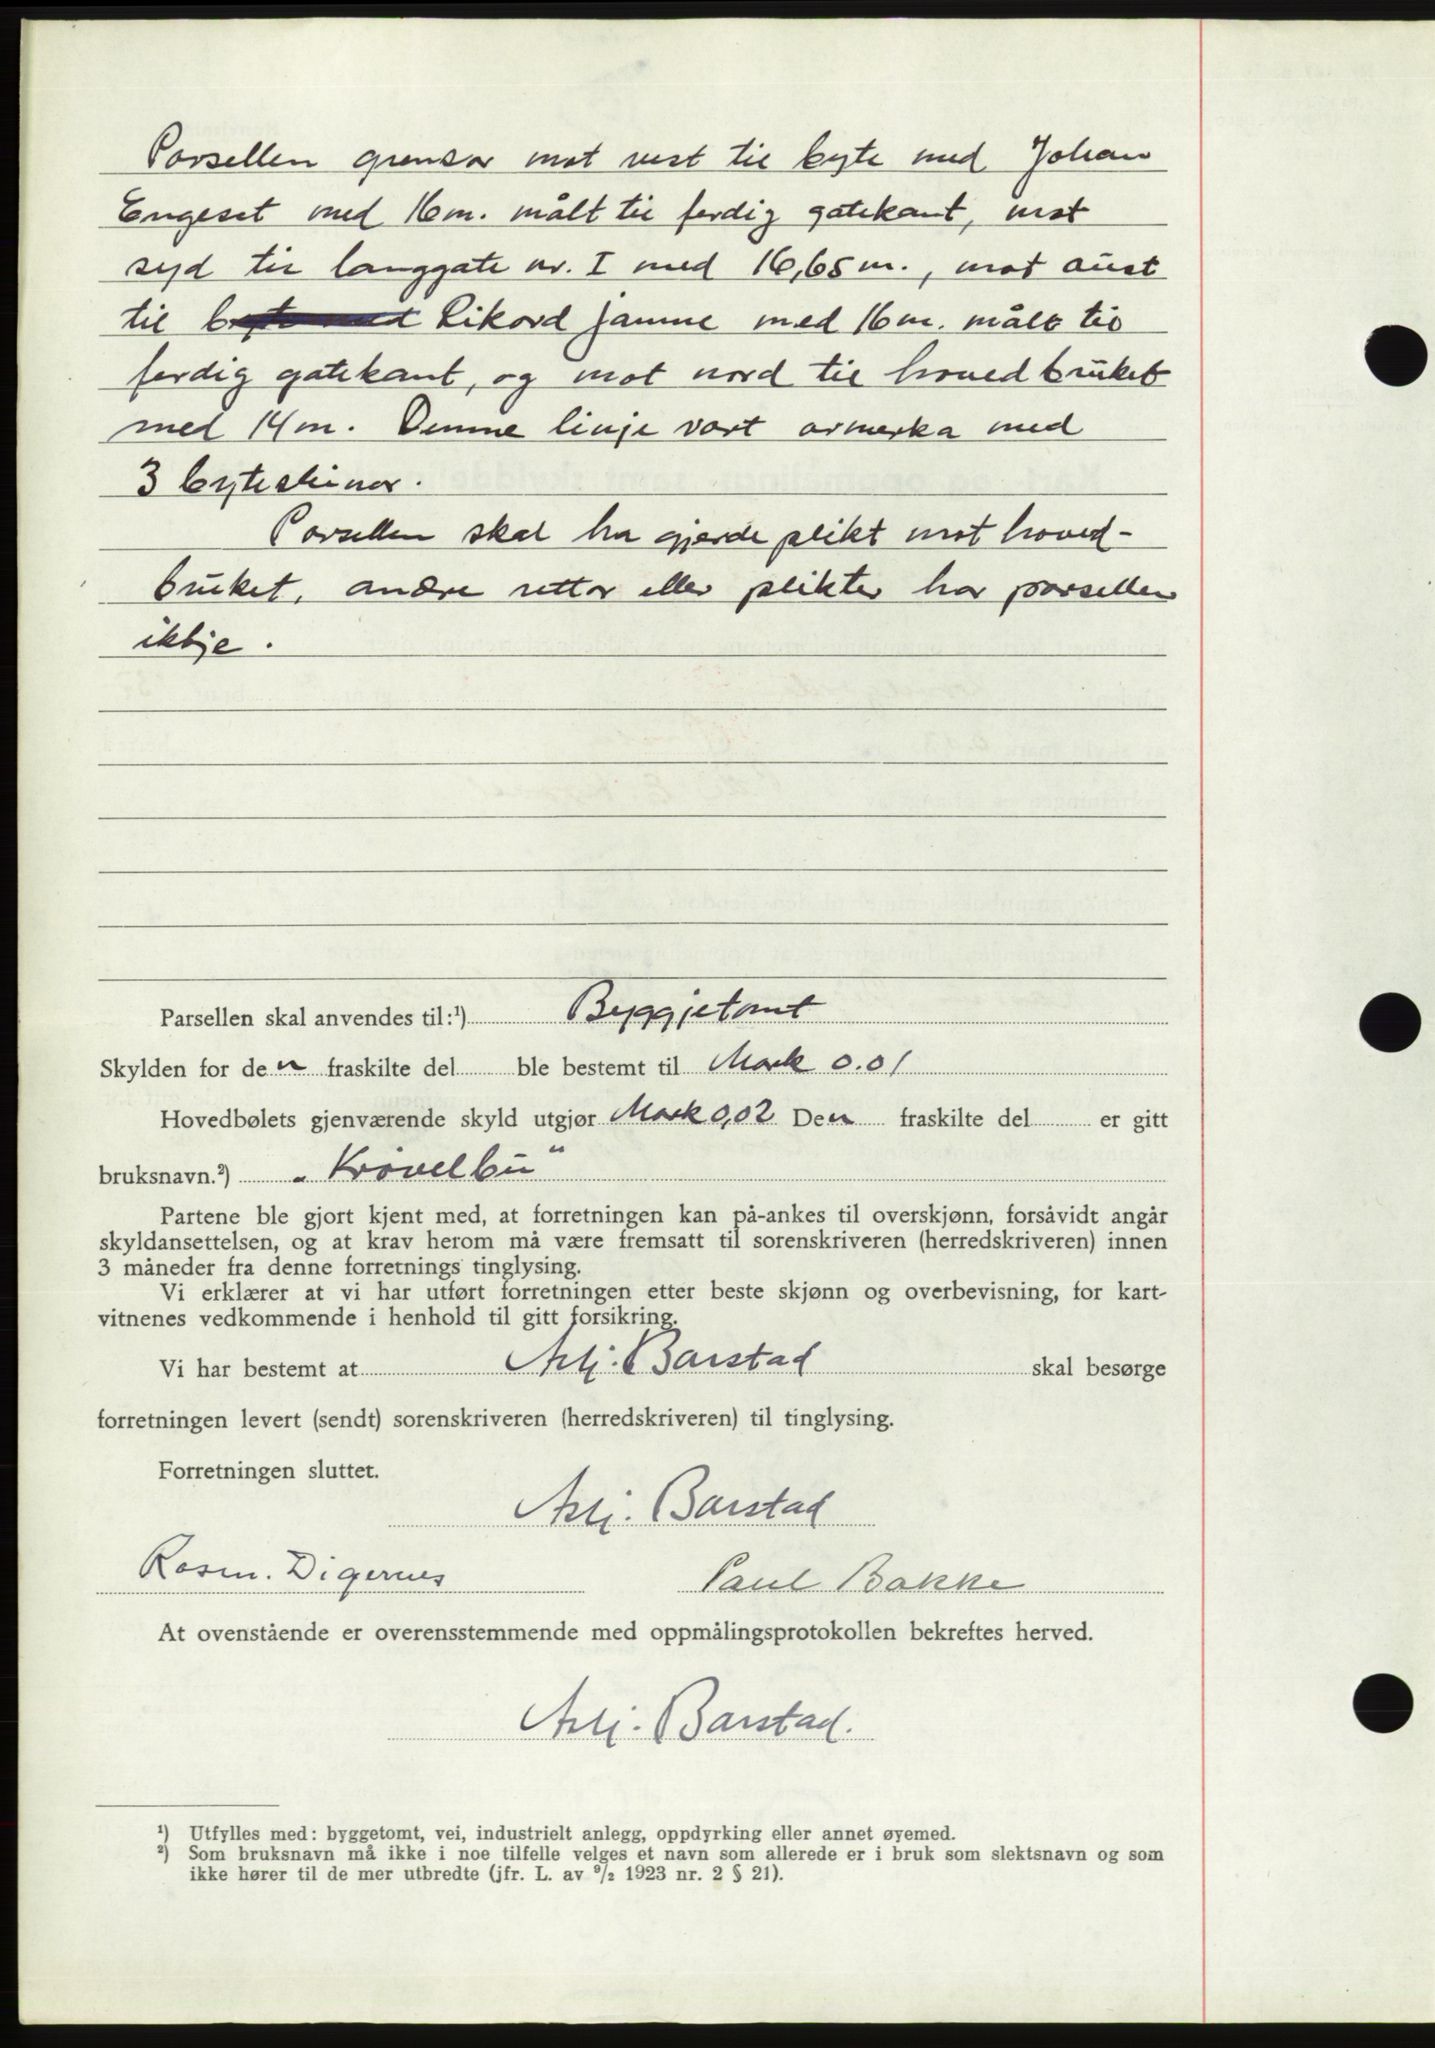 Parsellen grensar mot vest til byte med Johan
Engeset med 16 m. målt til ferdig gatekant, mot
syd til langgate nr. I med 16,65 m., mot aust
til byte med Rikard Jamne med 16 m. målt til
ferdig gatekant, og mot nord til hovedbruket
med 14 m. Denne linje vart avmerka med
3 bytesteinar.
Parsellen skal ha gjerdeplikt mot hoved-
bruket, andre rettar eller plikter har parsellen
ikkje.
Parsellen skal anvendes til:¹) Byggjetomt
Skylden for den fraskilte del ble bestemt til Mark 0.01
Hovedbølets gjenværende skyld utgjør Mark 0,02 Den fraskilte del er gitt
bruksnavn.²) „Krøvelbu“
Partene ble gjort kjent med, at forretningen kan på-ankes til overskjønn, forsåvidt angår
skyldansettelsen, og at krav herom må være fremsatt til sorenskriveren (herredskriveren) innen
3 måneder fra denne forretnings tinglysing.
Vi erklærer at vi har utført forretningen etter beste skjønn og overbevisning, for kart-
vitnenes vedkommende i henhold til gitt forsikring.
Vi har bestemt at Aslj. Barstad skal besørge
forretningen levert (sendt) sorenskriveren (herredskriveren) til tinglysing.
Forretningen sluttet.
Aslj. Barstad
Rasm. Digernes Paul Bakke
At ovenstående er overensstemmende med oppmålingsprotokollen bekreftes herved.
Aslj. Barstad.
¹) Utfylles med: byggetomt, vei, industrielt anlegg, oppdyrking eller annet øyemed.
²) Som bruksnavn må ikke i noe tilfelle velges et navn som allerede er i bruk som slektsnavn og som
ikke hører til de mer utbredte (jfr. L. av ⁹/₂ 1923 nr. 2 § 21).